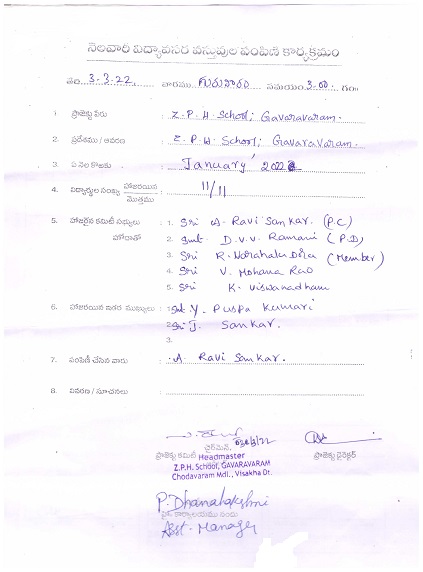 నెలవారి విద్యావసర వస్తువుల పంపిణి కార్యక్రమం
తేది. 3-3-22. వారము గురువారం సమయం: 3-00. గం॥
1 ప్రాజెక్టు పేరు : Z. P. H. School; Gavaravaram.
2. ప్రదేశము / ఆవరణ : Z. P. H School; Gavaravaram.
3. ఏ నెల కొఱకు : January' 2022
4. విద్యార్థుల సంఖ్య హాజరయిన / మొత్తము : 11/11
5. హాజరైన కమిటీ సభ్యులు : 1. Sri A. Ravi Sankar. (P.C)
హోదాతో 2. Smt. D. V. V. Ramani (P.D)
3. Sri R. Narahalu Dora (Member)
4. Sri V. Mohana Rao
5. Sri K. Viswanadham
6. హాజరయిన ఇతర ముఖ్యులు : 1. Smt Y. Puspa Kumari
2. Sri J. Sankar.
3.
7. పంపిణీ చేసిన వారు : A. Ravi Sankar.
8. వివరణ / సూచనలు :
చైర్మెన్,
ప్రాజెక్టు కమిటీ Headmaster ప్రాజెక్టు డైరెక్టర్
Z.P.H. School, GAVARAVARAM
Chodavaram Mdl., Visakha Dt.
P. Dhanalakshmi
Asst. Manager